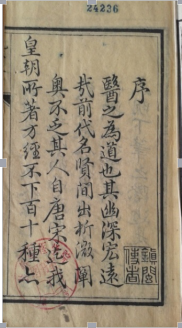 24236
序
醫之為道也其幽深宏遠
哉前代名賢間出折澂闡
奧不乏其人自唐宋迄我
皇朝所著方經不下百十種上